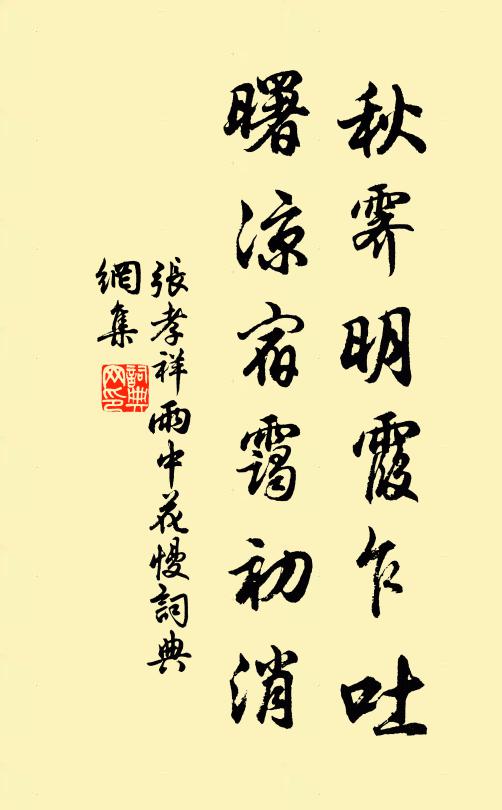 秋霽明霞乍吐
曙涼宿靄初消
張孝祥雨中花慢詞典
網集
詞典
网印